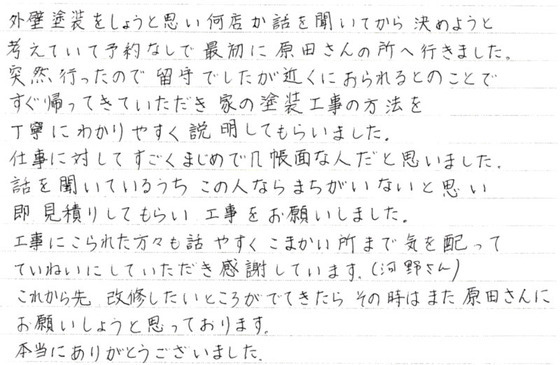 外壁塗装をしようと思い何店か話を聞いてから 決めようと
考えていて予約なしで 最初に 原田さんの所へ行きました。
突然、行ったので 留守でしたが近くにおられるとのことで
すぐ帰ってきていただき 家の塗装工事の方法を
丁寧にわかりやすく説明してもらいました。
仕事に対してすごくまじめで几帳面な人だと思いました。
話を聞いているうち この人なら まちがいないと思い
即 見積りしてもらい 工事をお願いしました。
工事にこられた方々も話 やすく こまかい所まで気を配って
ていねいにしていただき 感謝しています。(河野さん)
これから先 改修したいところがでてきたら その時はまた 原田さんに
お願いしようと思っております。
本当にありがとうございました。